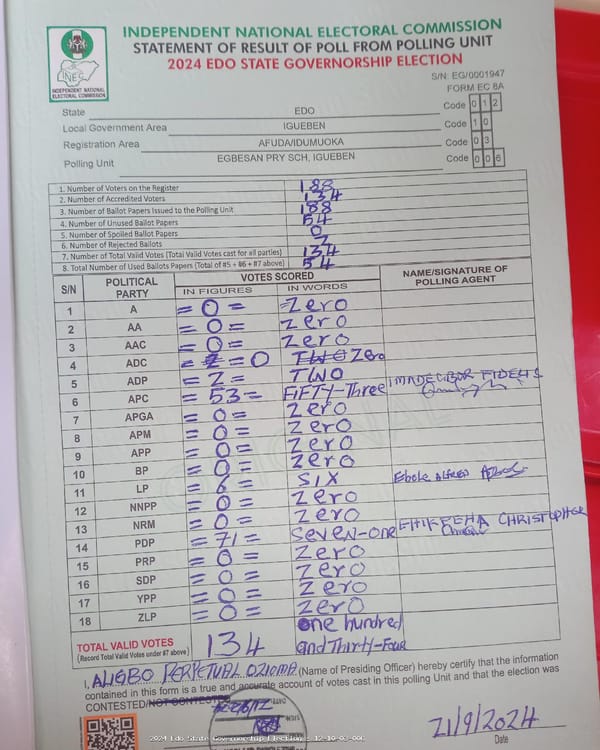 INDEPENDENT NATIONAL ELECTORAL COMMISSION
STATEMENT OF RESULT OF POLL FROM POLLING UNIT
2024 EDO STATE GOVERNORSHIP ELECTION
INEC
INDEPENDENT NATIONAL
ELECTORAL COMMISSION
S/N: EG/0001947
FORM EC 8A
State EDO Code 0 1 2
Local Government Area IGUEBEN Code 1 0
Registration Area AFUDA/IDUMUOKA Code 0 3
Polling Unit EGBESAN PRY SCH, IGUEBEN Code 0 0 6
1. Number of Voters on the Register 188
2. Number of Accredited Voters 134
3. Number of Ballot Papers Issued to the Polling Unit 188
4. Number of Unused Ballot Papers 54
5. Number of Spoiled Ballot Papers 0
6. Number of Rejected Ballots
7. Number of Total Valid Votes (Total Valid Votes cast for all parties) 134
8. Total Number of Used Ballots Papers (Total of #5 + #6 + #7 above) 54
S/N POLITICAL PARTY VOTES SCORED NAME/SIGNATURE OF POLLING AGENT
IN FIGURES IN WORDS
1 A = 0 = Zero
2 AA = 0 = Zero
3 AAC = 0 = Zero
4 ADC = 2 = 0 TWO Zero
5 ADP = 2 = TWO
6 APC = 53 = FIFTY-Three
7 APGA = 0 = Zero
8 APM = 0 = Zero
9 APP = 0 = Zero
10 BP = 0 = Zero
11 LP = 6 = SIX Ebole Alfred
12 NNPP = 0 = Zero
13 NRM = 0 = Zero
14 PDP = 71 = SEVEN-one CHRISTOPHER
15 PRP = 0 = Zero
16 SDP = 0 = Zero
17 YPP = 0 = Zero
18 ZLP = 0 = Zero
TOTAL VALID VOTES
(Record Total Valid Votes under #7 above)
134 one hundred
and Thirty-Four
I, ALIGBO PERPETUAL OZIOMA (Name of Presiding Officer) hereby certify that the information
contained in this form is a true and accurate account of votes cast in this polling Unit and that the election was
CONTESTED/NOT CONTESTED
21/9/2024
Date
2024 Edo State Governorship Election - 12-10-03-006